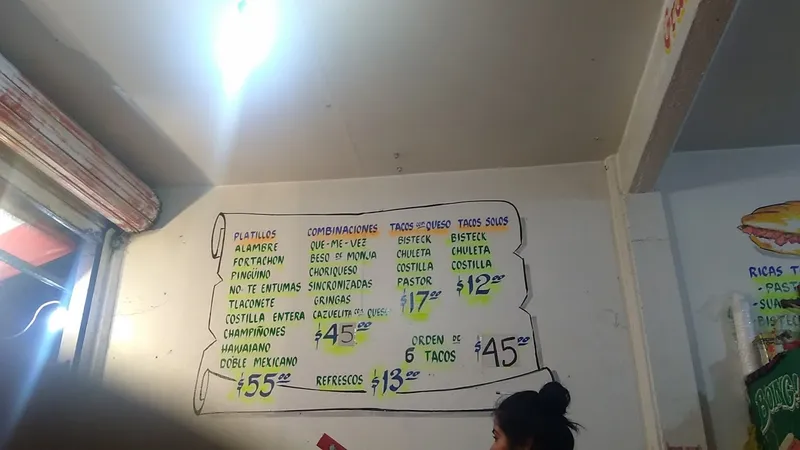 PLATILLOS
ALAMBRE
FORTACHON
PINGÜINO
NO TE ENTUMAS
TLACONETE
COSTILLA ENTERA
CHAMPIÑONES
HAWAIANO
DOBLE MEXICANO
$55.00
COMBINACIONES
QUE-ME-VEZ
BESO DE MONJA
CHORIQUESO
SINCRONIZADAS
GRINGAS
CAZUELITA CON QUESO
$45.00
TACOS CON QUESO
BISTECK
CHULETA
COSTILLA
PASTOR
$17.00
TACOS SOLOS
BISTECK
CHULETA
COSTILLA
$12.00
ORDEN DE
6 TACOS
$45.00
REFRESCOS $13.00
RICAS T
PAST
SUA
BISTEC
BOING!